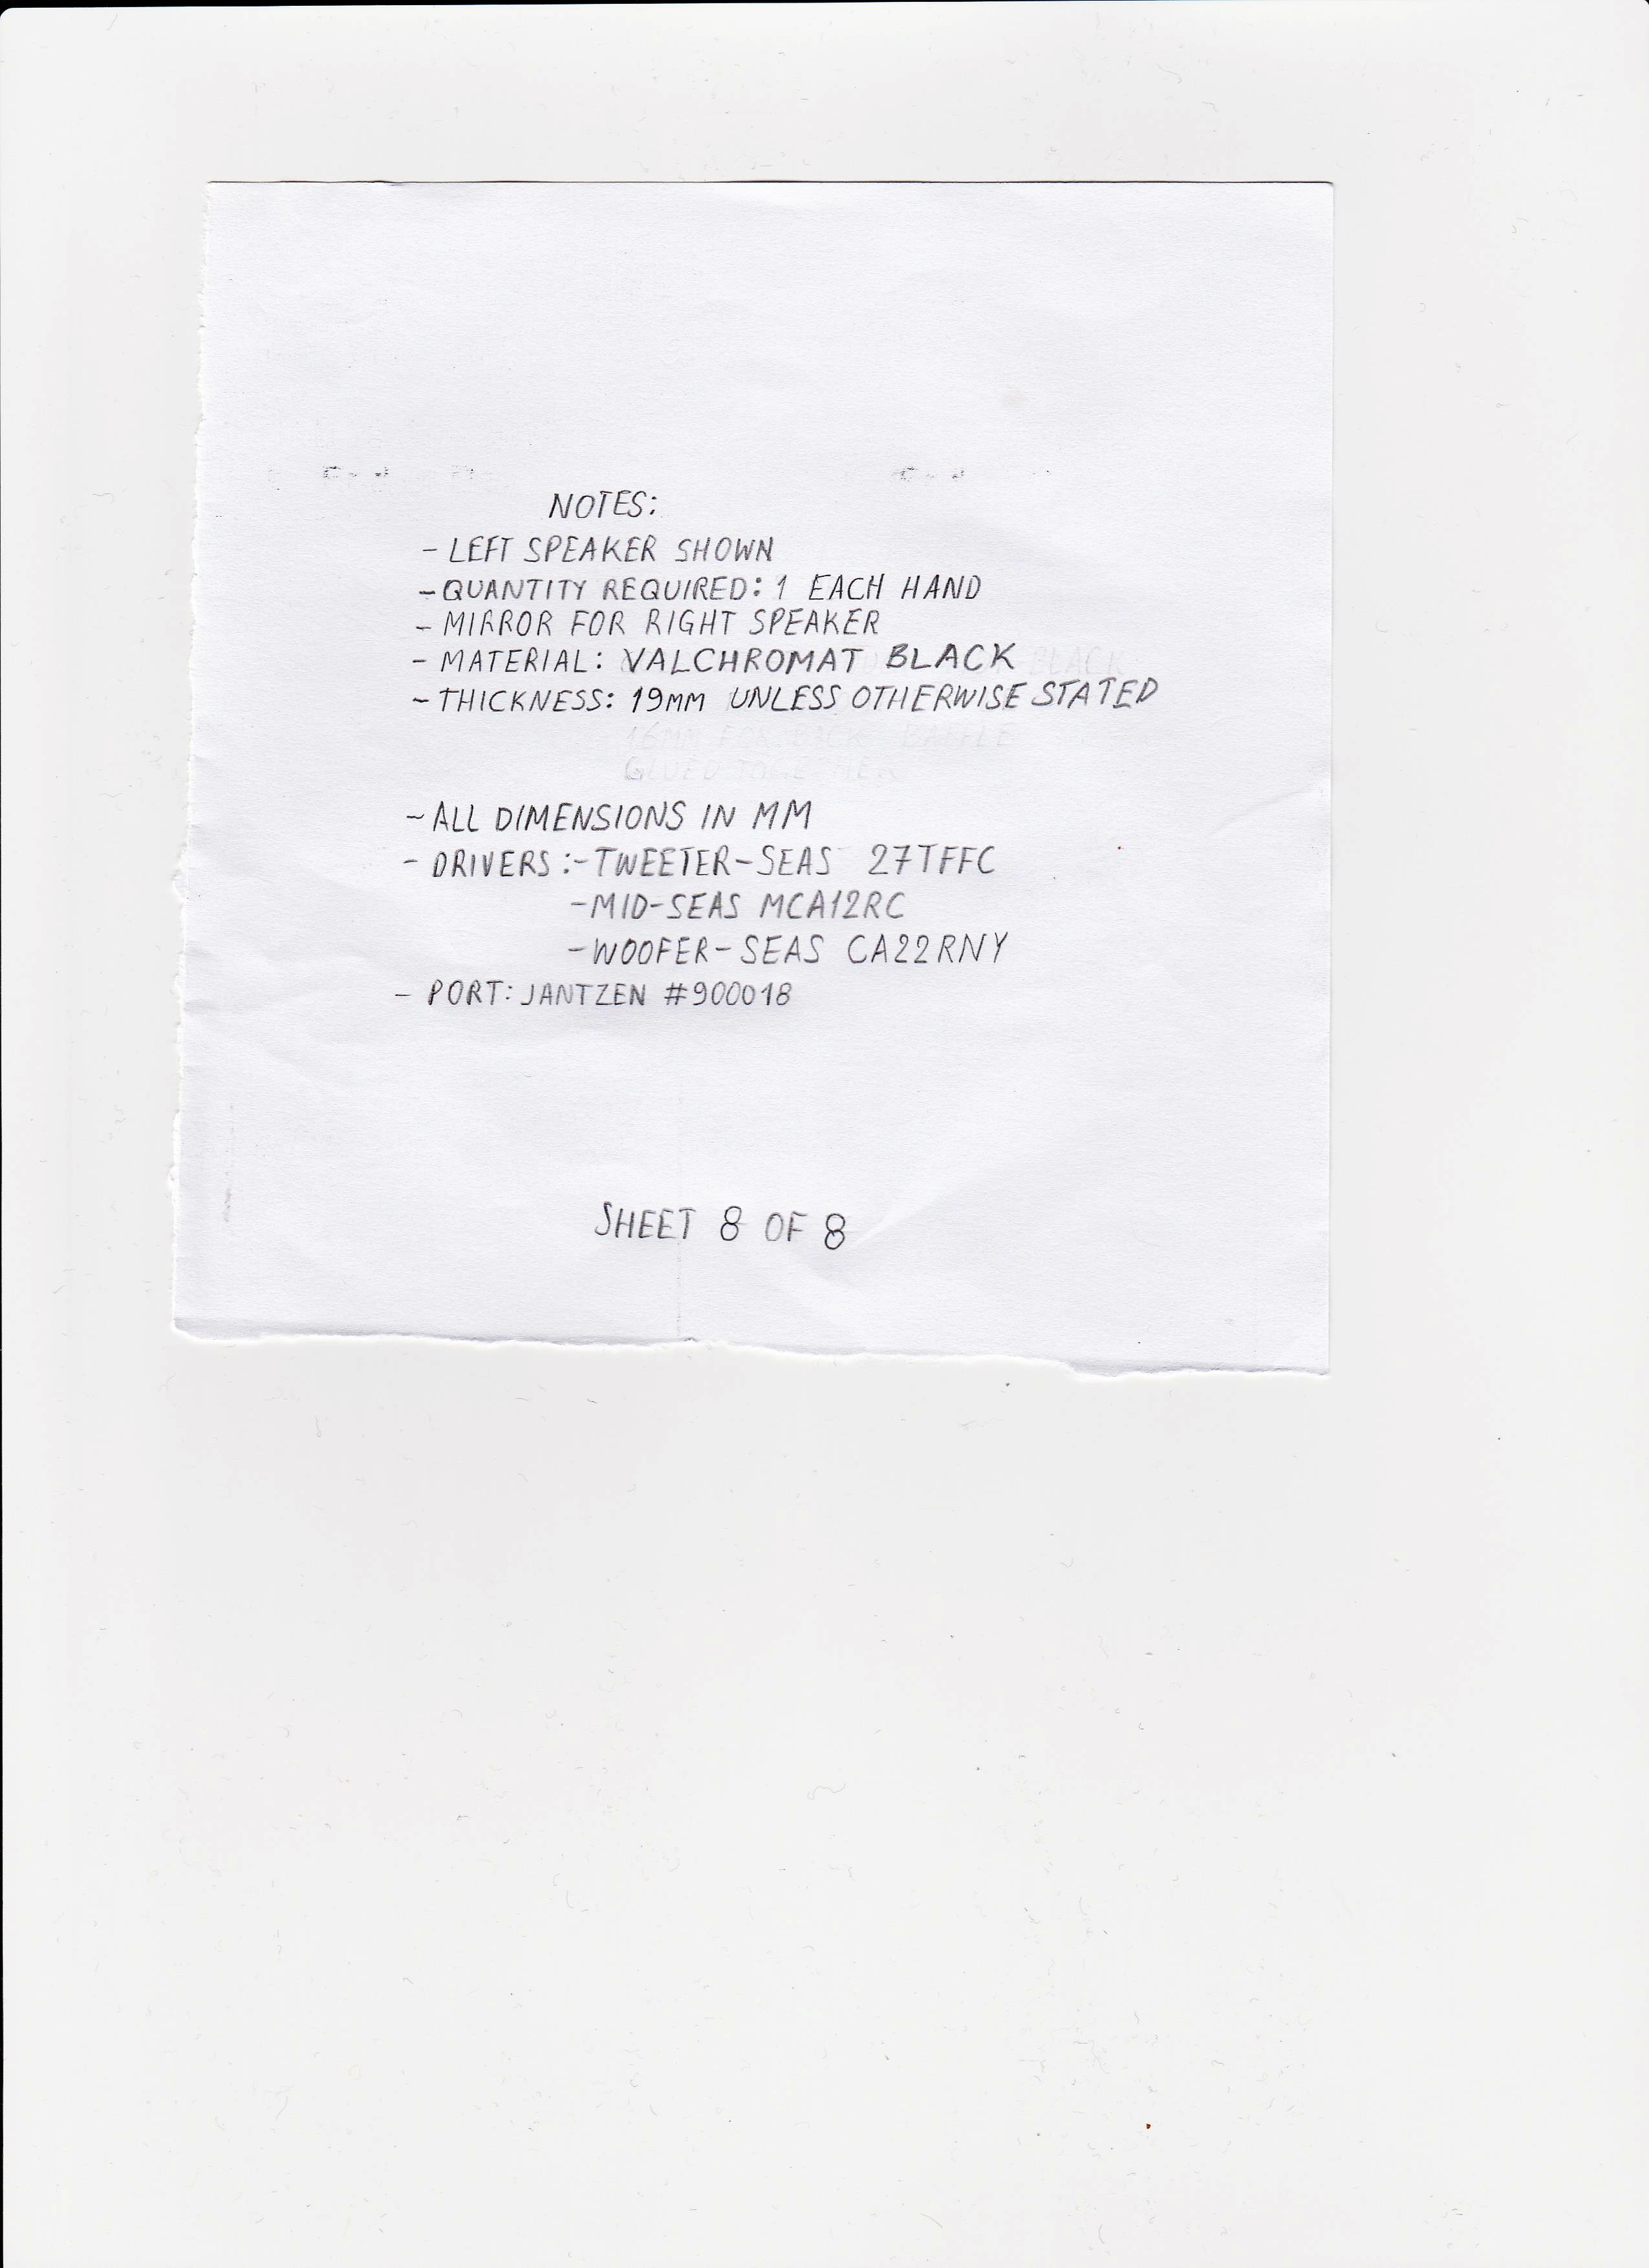 NOTES:
- LEFT SPEAKER SHOWN
- QUANTITY REQUIRED: 1 EACH HAND
- MIRROR FOR RIGHT SPEAKER
- MATERIAL: VALCHROMAT BLACK
- THICKNESS: 19MM UNLESS OTHERWISE STATED
16MM FOR BACK BAFFLE
GLUED TOGETHER
- ALL DIMENSIONS IN MM
- DRIVERS:- TWEETER-SEAS 27TFFC
- MID-SEAS MCA12RC
- WOOFER-SEAS CA22RNY
- PORT: JANTZEN #900018
SHEET 8 OF 8